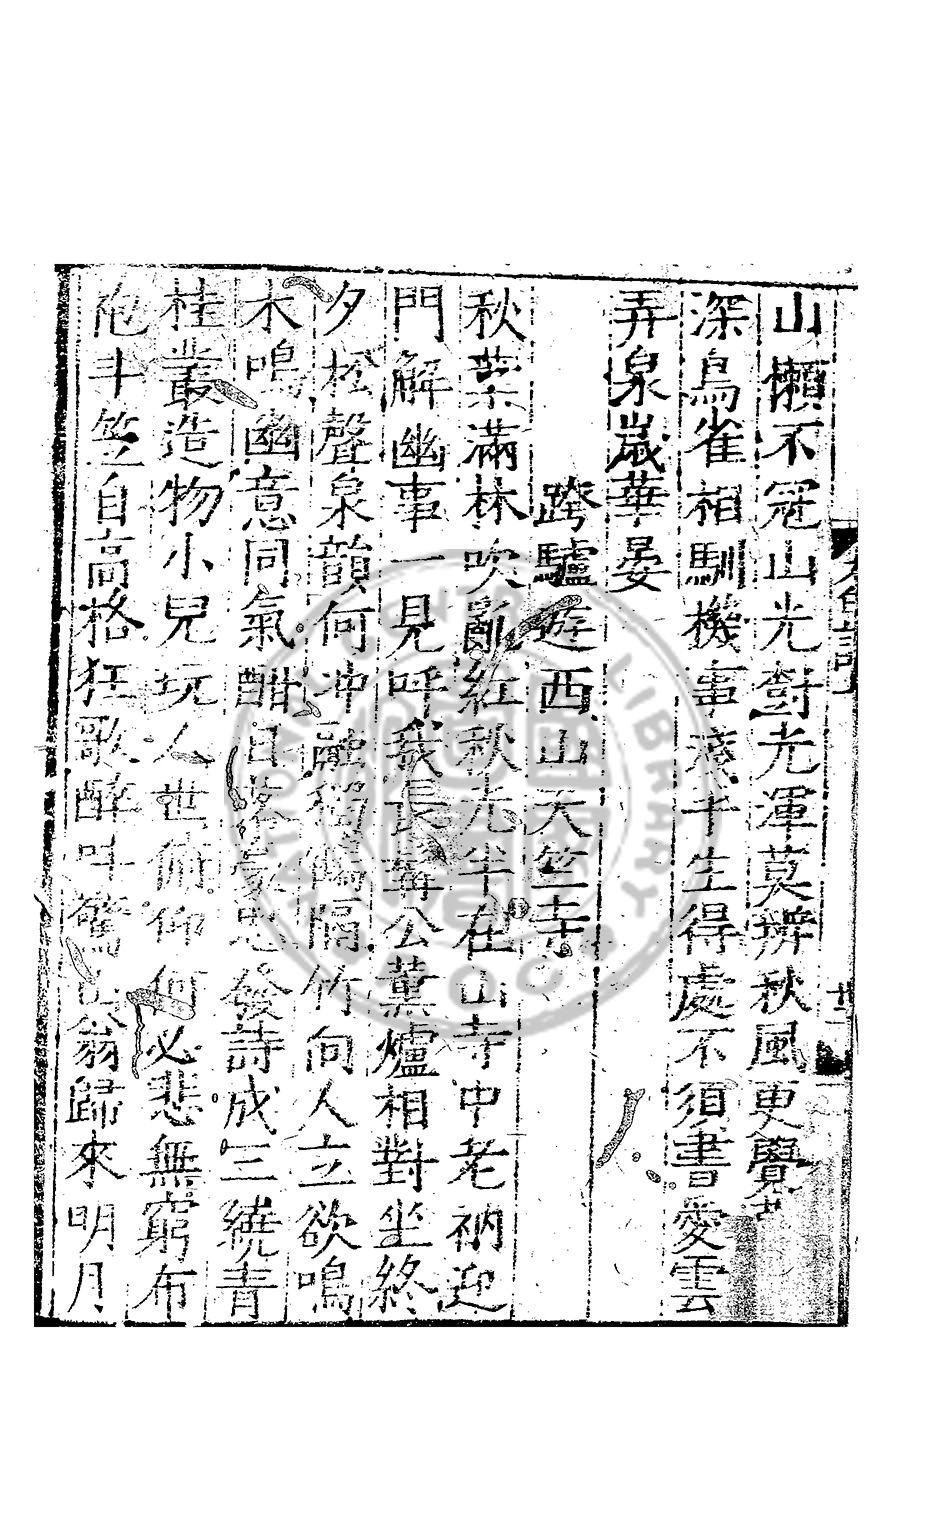 山懶不冠山光對光渾莫辨秋風更覺
深鳥雀相馴機事淺千生得處不須書愛雲
弄泉歲華晏
跨驢遊西山天竺寺
秋葉滿林吹亂紅秋光半在山寺中老衲迎
門解幽事一見呼我長髯公薰爐相對坐終
夕松聲泉韻何冲融獨隔竹向人立欲鳴
木鳴幽意同氣酣日落思發詩成三繞青
桂叢造物小兒玩人世俯仰何必悲無窮布
袍斗笠自高格狂歌醉叫驚翁歸來明月
NATIONAL CENTRAL LIBRARY